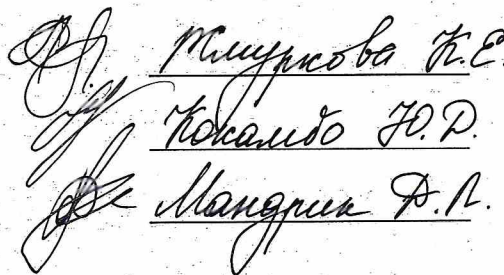 Жмуркова К.Е.
Кокамбо Ю.Д.
Мандрик А.Л.